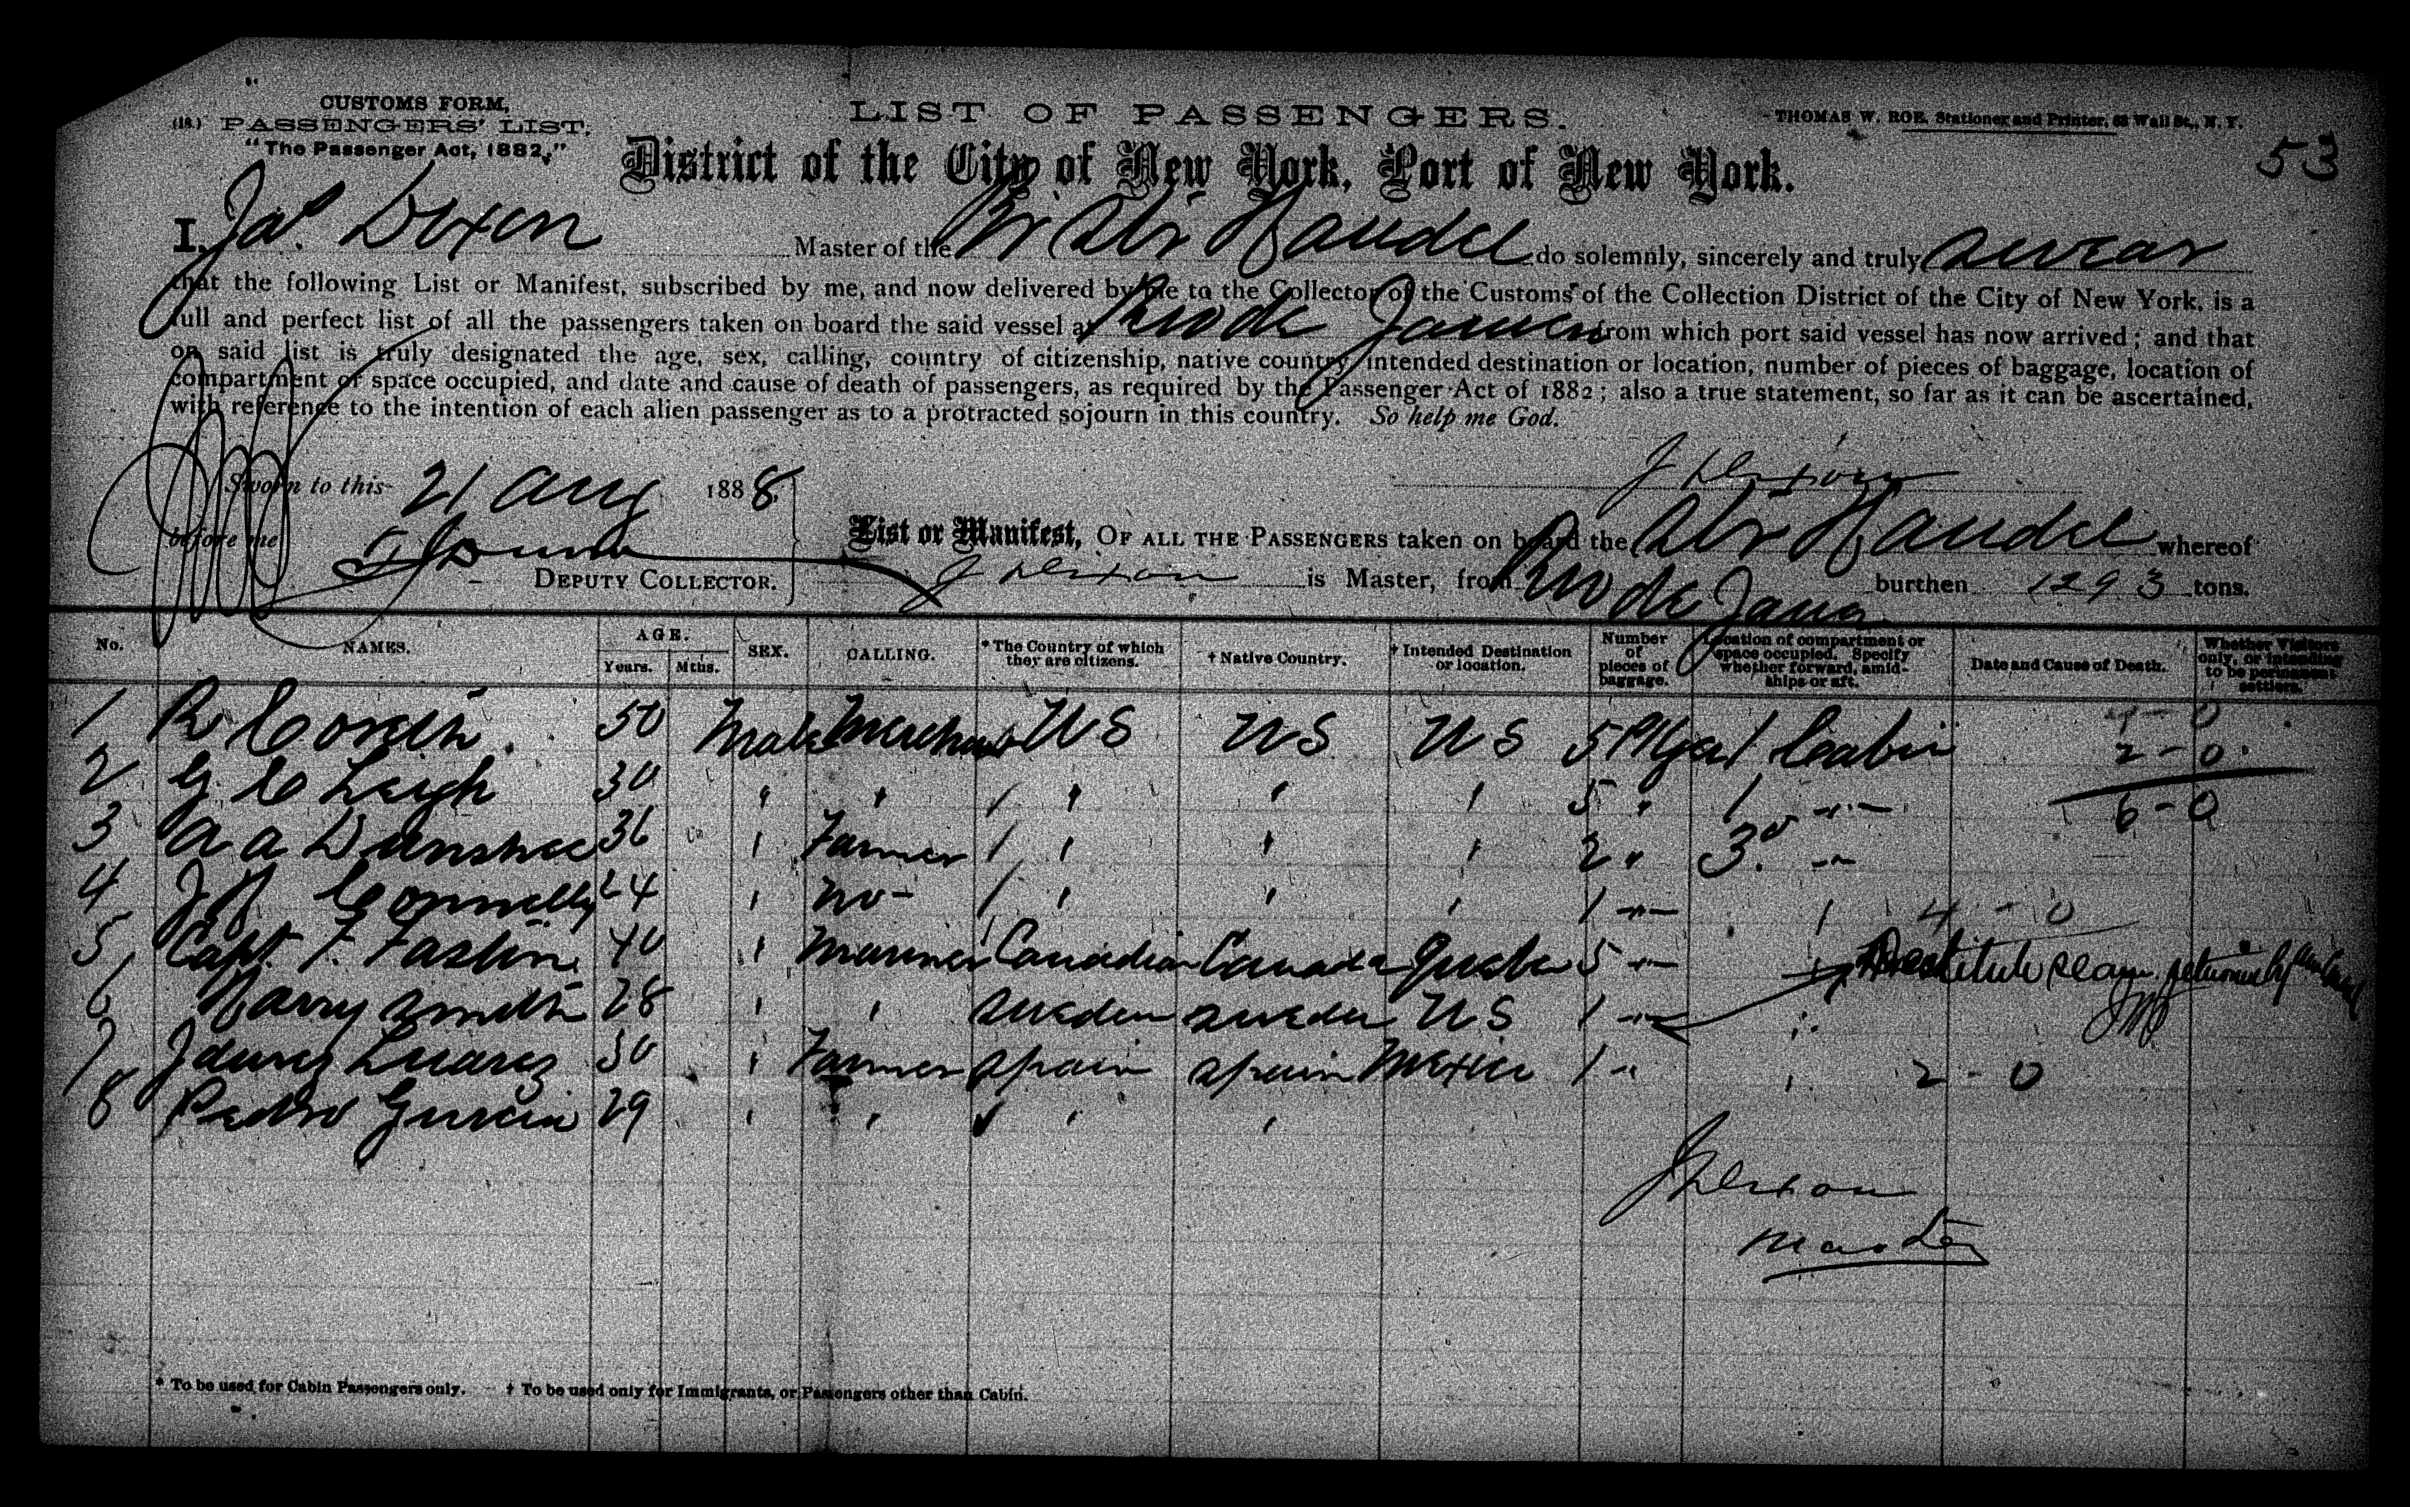 CUSTOMS FORM,
(18.) PASSENGERS' LIST.
"The Passenger Act, 1882."
LIST OF PASSENGERS.
THOMAS W. ROE, Stationer and Printer, 63 Wall St., N. Y.
53
District of the City of New York, Port of New York.
I, Jas. Dixon Master of the Br Str Handel do solemnly, sincerely and truly swear
that the following List or Manifest, subscribed by me, and now delivered by me to the Collector of the Customs of the Collection District of the City of New York, is a
full and perfect list of all the passengers taken on board the said vessel at Rio de Janeiro from which port said vessel has now arrived; and that
on said list is truly designated the age, sex, calling, country of citizenship, native country, intended destination or location, number of pieces of baggage, location of
compartment or space occupied, and date and cause of death of passengers, as required by the Passenger Act of 1882; also a true statement, so far as it can be ascertained,
with reference to the intention of each alien passenger as to a protracted sojourn in this country. So help me God.
J Dixon
Sworn to this 21 Aug 1888.
before me
DEPUTY COLLECTOR.
List or Manifest, OF ALL THE PASSENGERS taken on board the Str Handel whereof
J Dixon is Master, from Rio de Janeiro burthen 1293 tons.
No. NAMES. AGE. Years. Mths. SEX. CALLING. * The Country of which they are citizens. † Native Country. † Intended Destination or location. Number of pieces of baggage. Location of compartment or space occupied. Specify whether forward, amidships or aft. Date and Cause of Death. Whether Visitors only, or intending to be permanent settlers.
1 R 50 Male Merchant US US US 5 1 Cabin
2 G C Leigh 30 " " / " " " 5 " 1 " 2-0
6-0
3 A A Dunshee 36 " Farmer / " " " 2 " 3. "
4 J H Connelly 24 " no - / " " " 1 " " 4-0
5 Capt. F. Faslin 40 " Mariner Canadian Canada Quebec 5 " " Destitute
6 Harry Smith 28 " " Sweden Sweden US 1 " "
7 Luarez 30 " Farmer Spain Spain Mexico 1 " " 2-0
8 Pedro Garcia 29 " " " "
J Dixon
Master
* To be used for Cabin Passengers only. † To be used only for Immigrants, or Passengers other than Cabin.